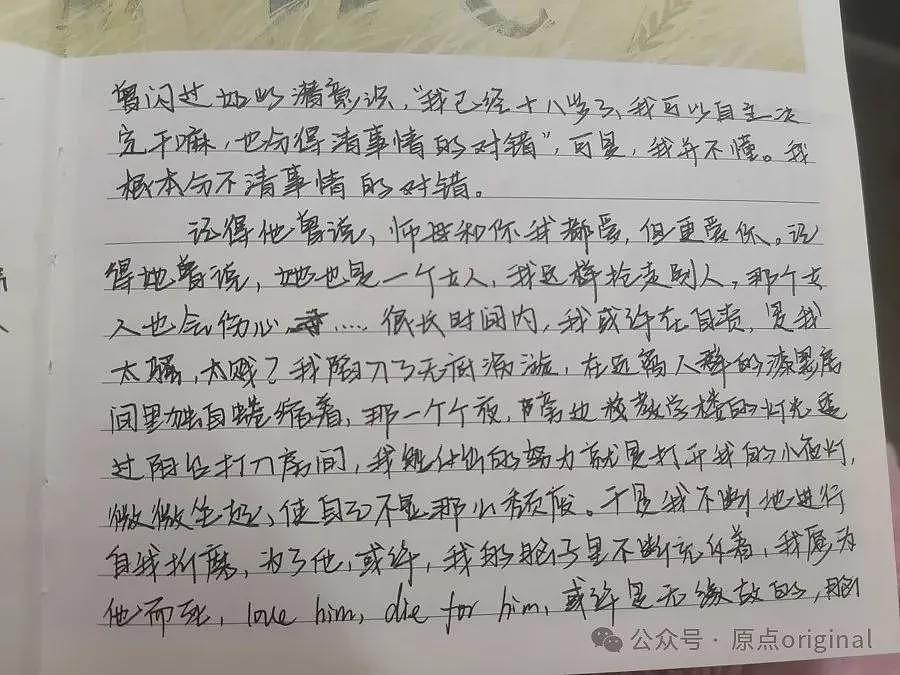 曾闪过如此潜意识，"我已经十八岁了、我可以自主决
定干嘛，也分得清事情的对错"，可是，我并不懂。我
根本分不清事情的对错。
记得他曾说，师母和你我都爱，但更爱你。记
得她曾说，她也是一个女人，我这样抢走别人，那个女
人也会伤心.....很长时间内，我或许在自责，是我
太骚，太贱？我陷入了无底漩涡，在远离人群的漆黑房
间里独自蜷缩着，那一个个夜，旁边校教学楼的灯光透
过阳台打入房间，我能做出的努力就是打开我的小夜灯，
微微坐起、使自己不显那么颓废。于是我不断地进行
自我折磨，为了他，或许，我的脑子里不断充斥着，我愿为
他而死，love him, die for him, 或许是无缘故的，脑
公众号·原点original